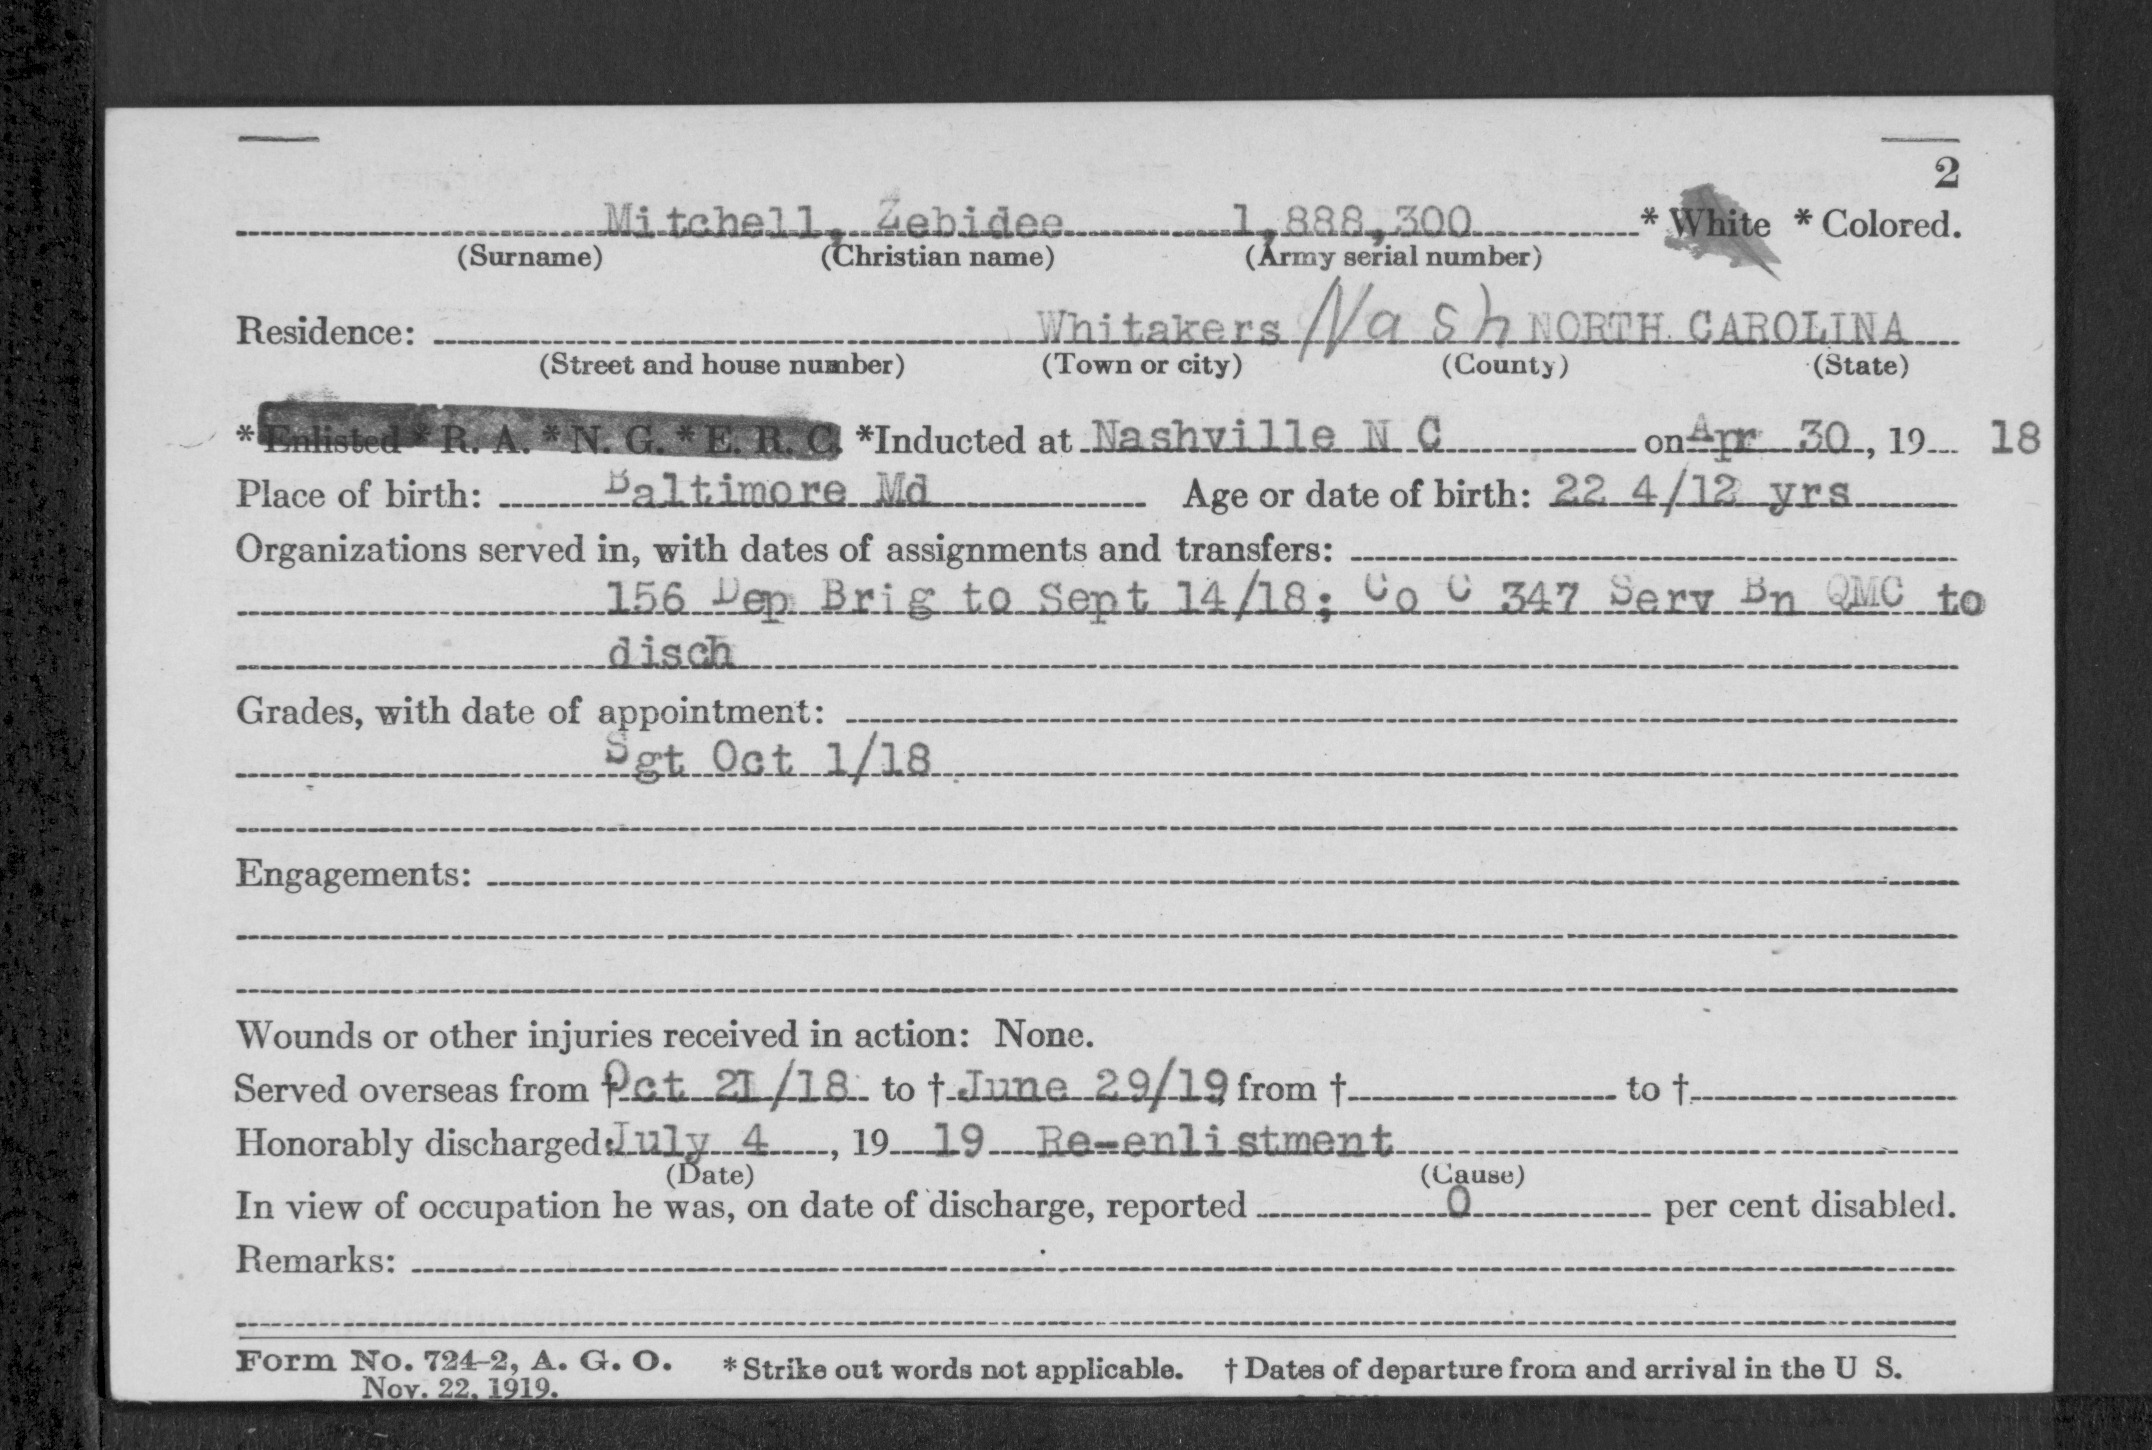 2
Mitchell, Zebidee 1,888,300 * White * Colored.
(Surname) (Christian name) (Army serial number)
Residence: Whitakers Nash NORTH CAROLINA
(Street and house number) (Town or city) (County) (State)
* Enlisted * R. A. * N. G. * E. R. C. *Inducted at Nashville N C on Apr 30, 19 18
Place of birth: Baltimore Md Age or date of birth: 22 4/12 yrs
Organizations served in, with dates of assignments and transfers:
156 Dep Brig to Sept 14/18; Co C 347 Serv Bn QMC to
disch
Grades, with date of appointment:
Sgt Oct 1/18
Engagements:
Wounds or other injuries received in action: None.
Served overseas from † Oct 21/18 to † June 29/19, from † to †
Honorably discharged: July 4, 19 19 Re-enlistment
(Date) (Cause)
In view of occupation he was, on date of discharge, reported 0 per cent disabled.
Remarks:
Form No. 724-2, A. G. O. * Strike out words not applicable. † Dates of departure from and arrival in the U S.
Nov. 22, 1919.